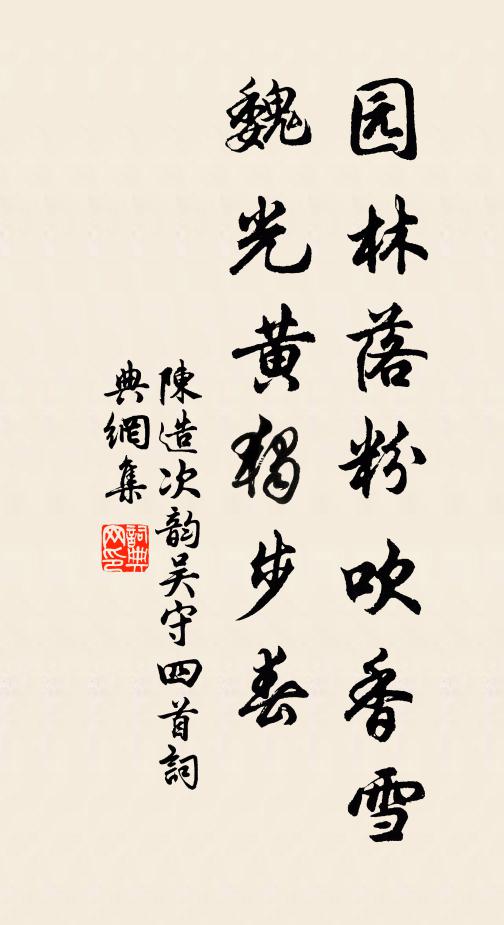 园林落粉吹香雪
魏光黄独步春
陳造次韵吴守四首詞
典網集
詞典
网印